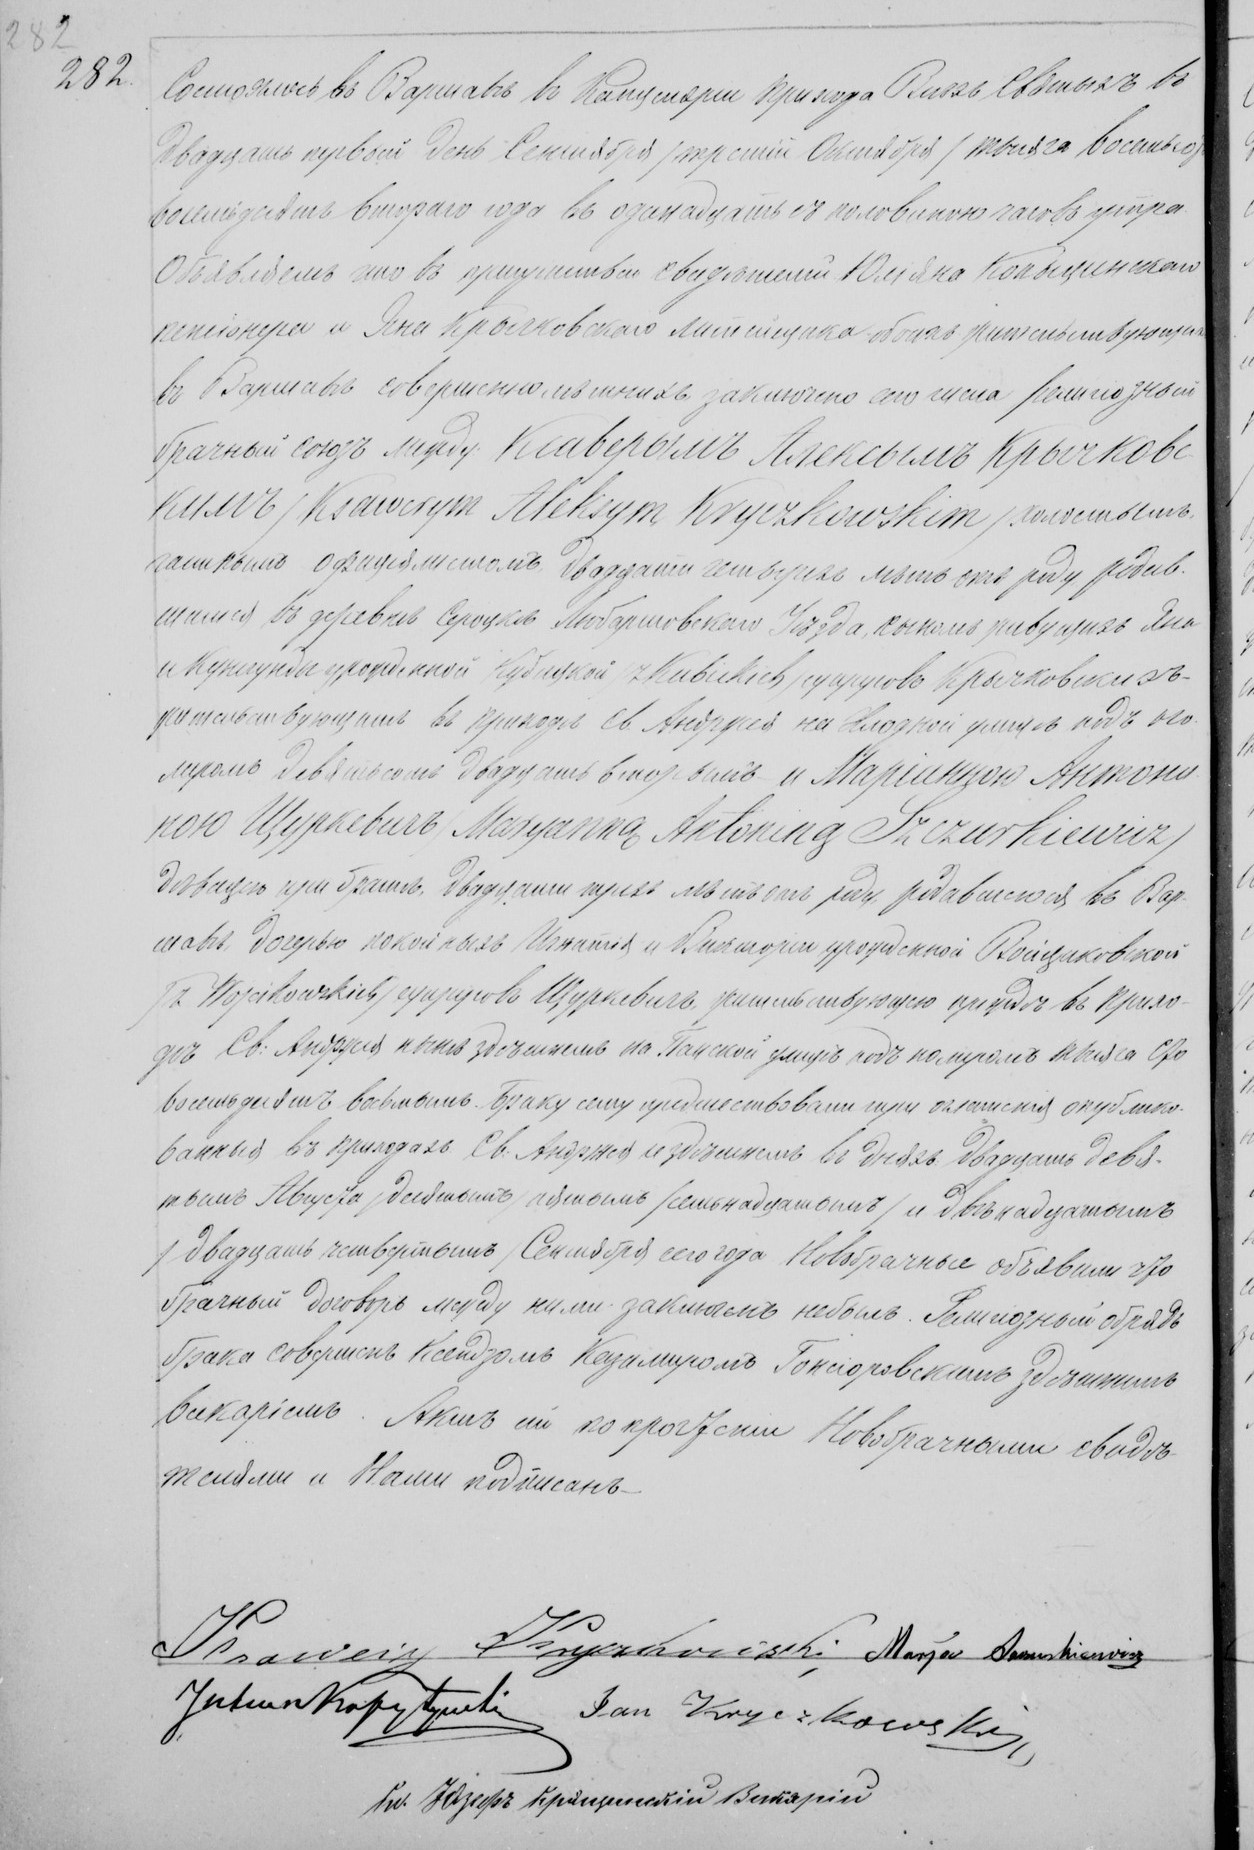 282
282.
Состоялось въ Варшавѣ въ Канцеляріи прихода Всѣхъ Святыхъ въ
двадцать первый день Сентября /третій Октября/ тысяча восемьсотъ
восемьдесятъ втораго года въ одинадцать съ половиною часовъ утра
Объявляемъ что въ присутствіи свидѣтелей Юліяна Копытинскаго
пенсіонера и Яна Крычковскаго обоихъ жительствующихъ
въ Варшавѣ совершеннолѣтнихъ заключено сего числа религіозный
брачный союзъ между Ксаверымъ Алексымъ Крычковс-
кимъ /Ksawerym Aleksym Kryczkowskim/ холостымъ,
частнымъ оффиціялистомъ двадцати четырехъ лѣтъ отъ роду родив-
шимся въ деревнѣ Сероцкѣ Любартовскаго Уѣзда, сыномъ живущихъ Яна
и Кунегунды урожденной Кубицкой /z Kubickich/ супруговъ Крычковскихъ-
жительствующимъ въ приходѣ Св. Андрея на Хлодной улицѣ подъ но-
меромъ девятьсотъ двадцать вторымъ- и Маріянною Антони-
ною Щуркевичъ /Maryanną Antoniną Szczurkiewicz/
дѣвицею при братѣ, двадцати трехъ лѣтъ отъ роду, родившеюся въ Вар-
шавѣ, дочерью покойныхъ Игнатія и Викторіи урожденной Войцѣковской
/z Wojcikowskich/ супруговъ Щуркевичъ, жительствующею прежде въ прихо-
дѣ Св: Андрея нынѣ здѣшнемъ на Панской улицѣ подъ номеромъ тысяча сто
восемьдесятъ восьмымъ. Браку сему предшествовали три оглашенія опублико-
ванныя въ приходахъ Св. Андрея и здѣшнемъ въ дняхъ двадцать девя-
томъ Августа /десятомъ/ пятомъ /семьнадцатомъ/ и двѣнадцатомъ
/двадцать четвертомъ/ Сентября сего года Новобрачные объявили что
брачный договоръ между ними заключенъ небылъ. Религіозный обрядъ
брака совершенъ Ксендзомъ Казимиромъ Гонсіоровскимъ здѣшнимъ
викаріемъ. Актъ сей по прочтеніи Новобрачными свидѣ-
телями и Нами подписанъ-
Ksawery Kryczkowski, Marja Szczurkiewicz
Julian Kopytyński Jan Kryczkowski
Кс. Юзефъ Викарій